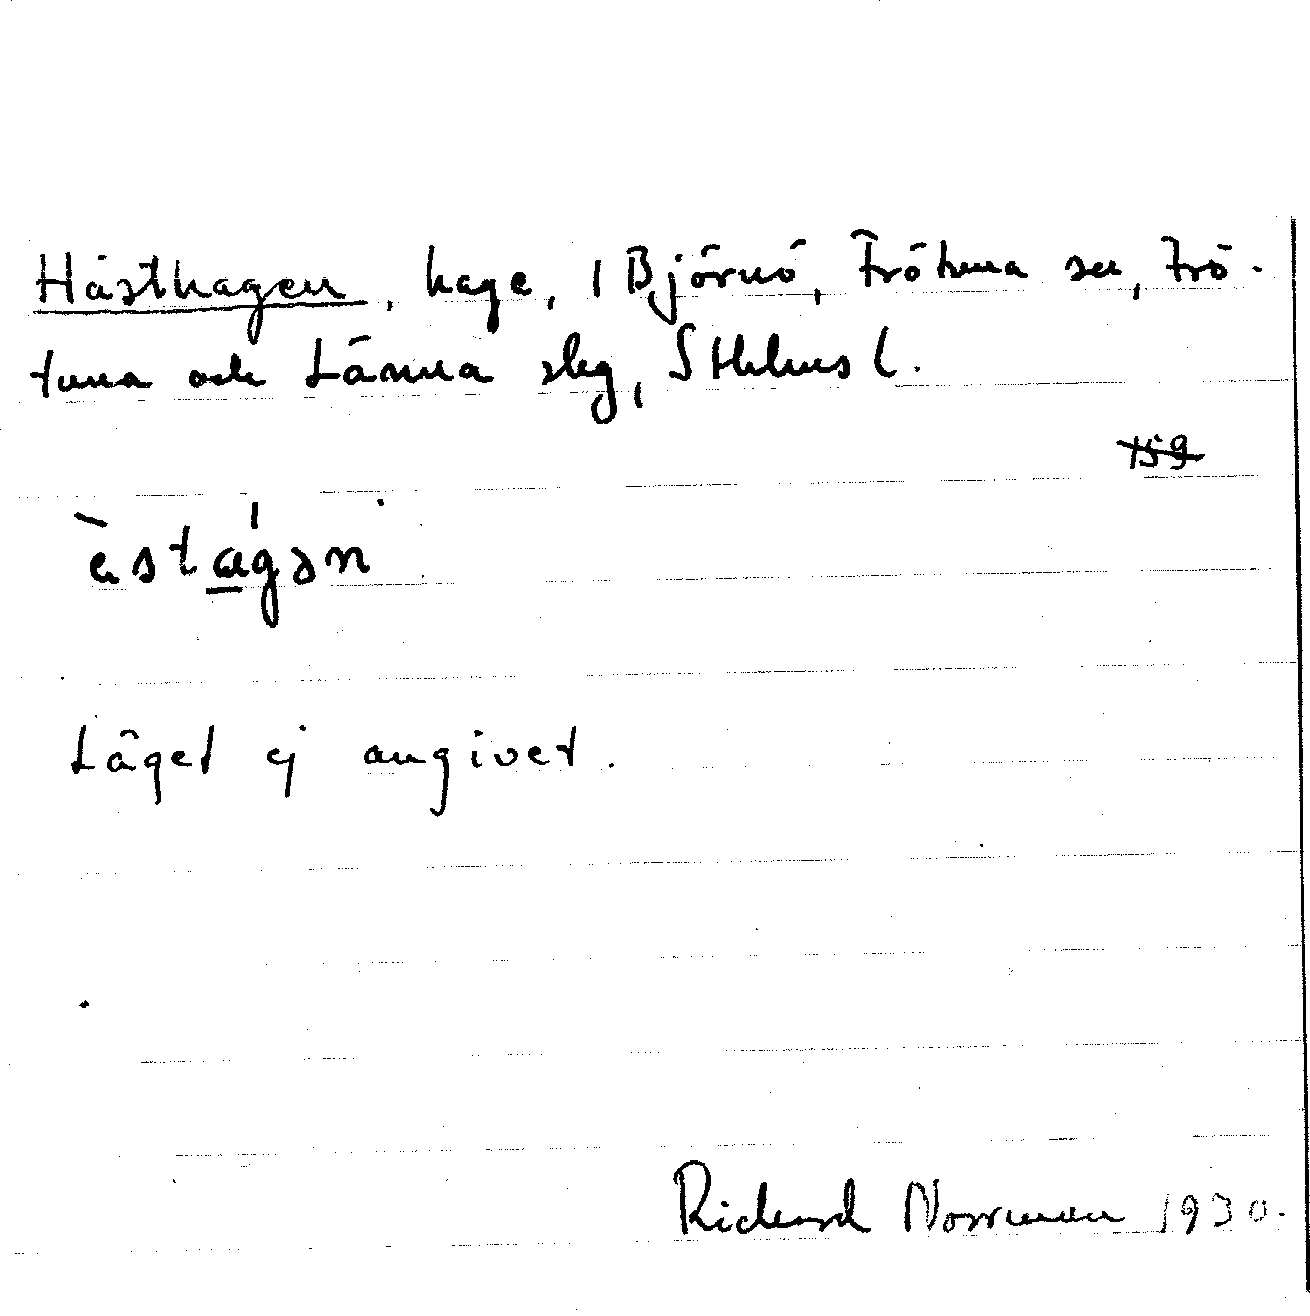 Hästhagen, hage, 1 Björnö, Frötuna sn, Frö-
tuna och Länna slg, Sthlms l.
159
àstágən
Läget ej angivet.
Richard Norrman 1930.